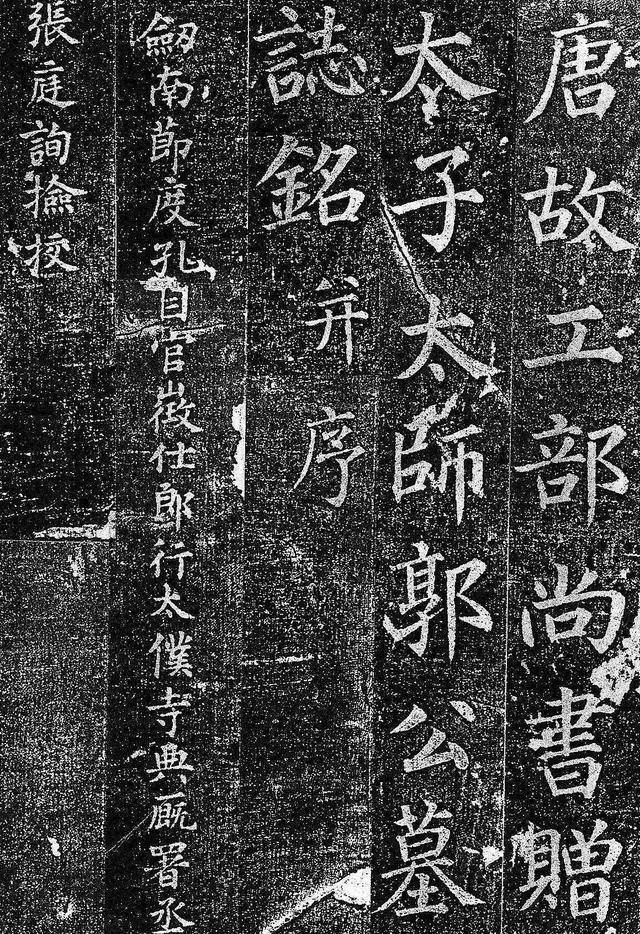 唐故工部尚書贈
太子太師郭公墓
誌銘并序
劒南節度孔目官徵仕郎行太僕寺典廐署丞
張庭詢撿挍